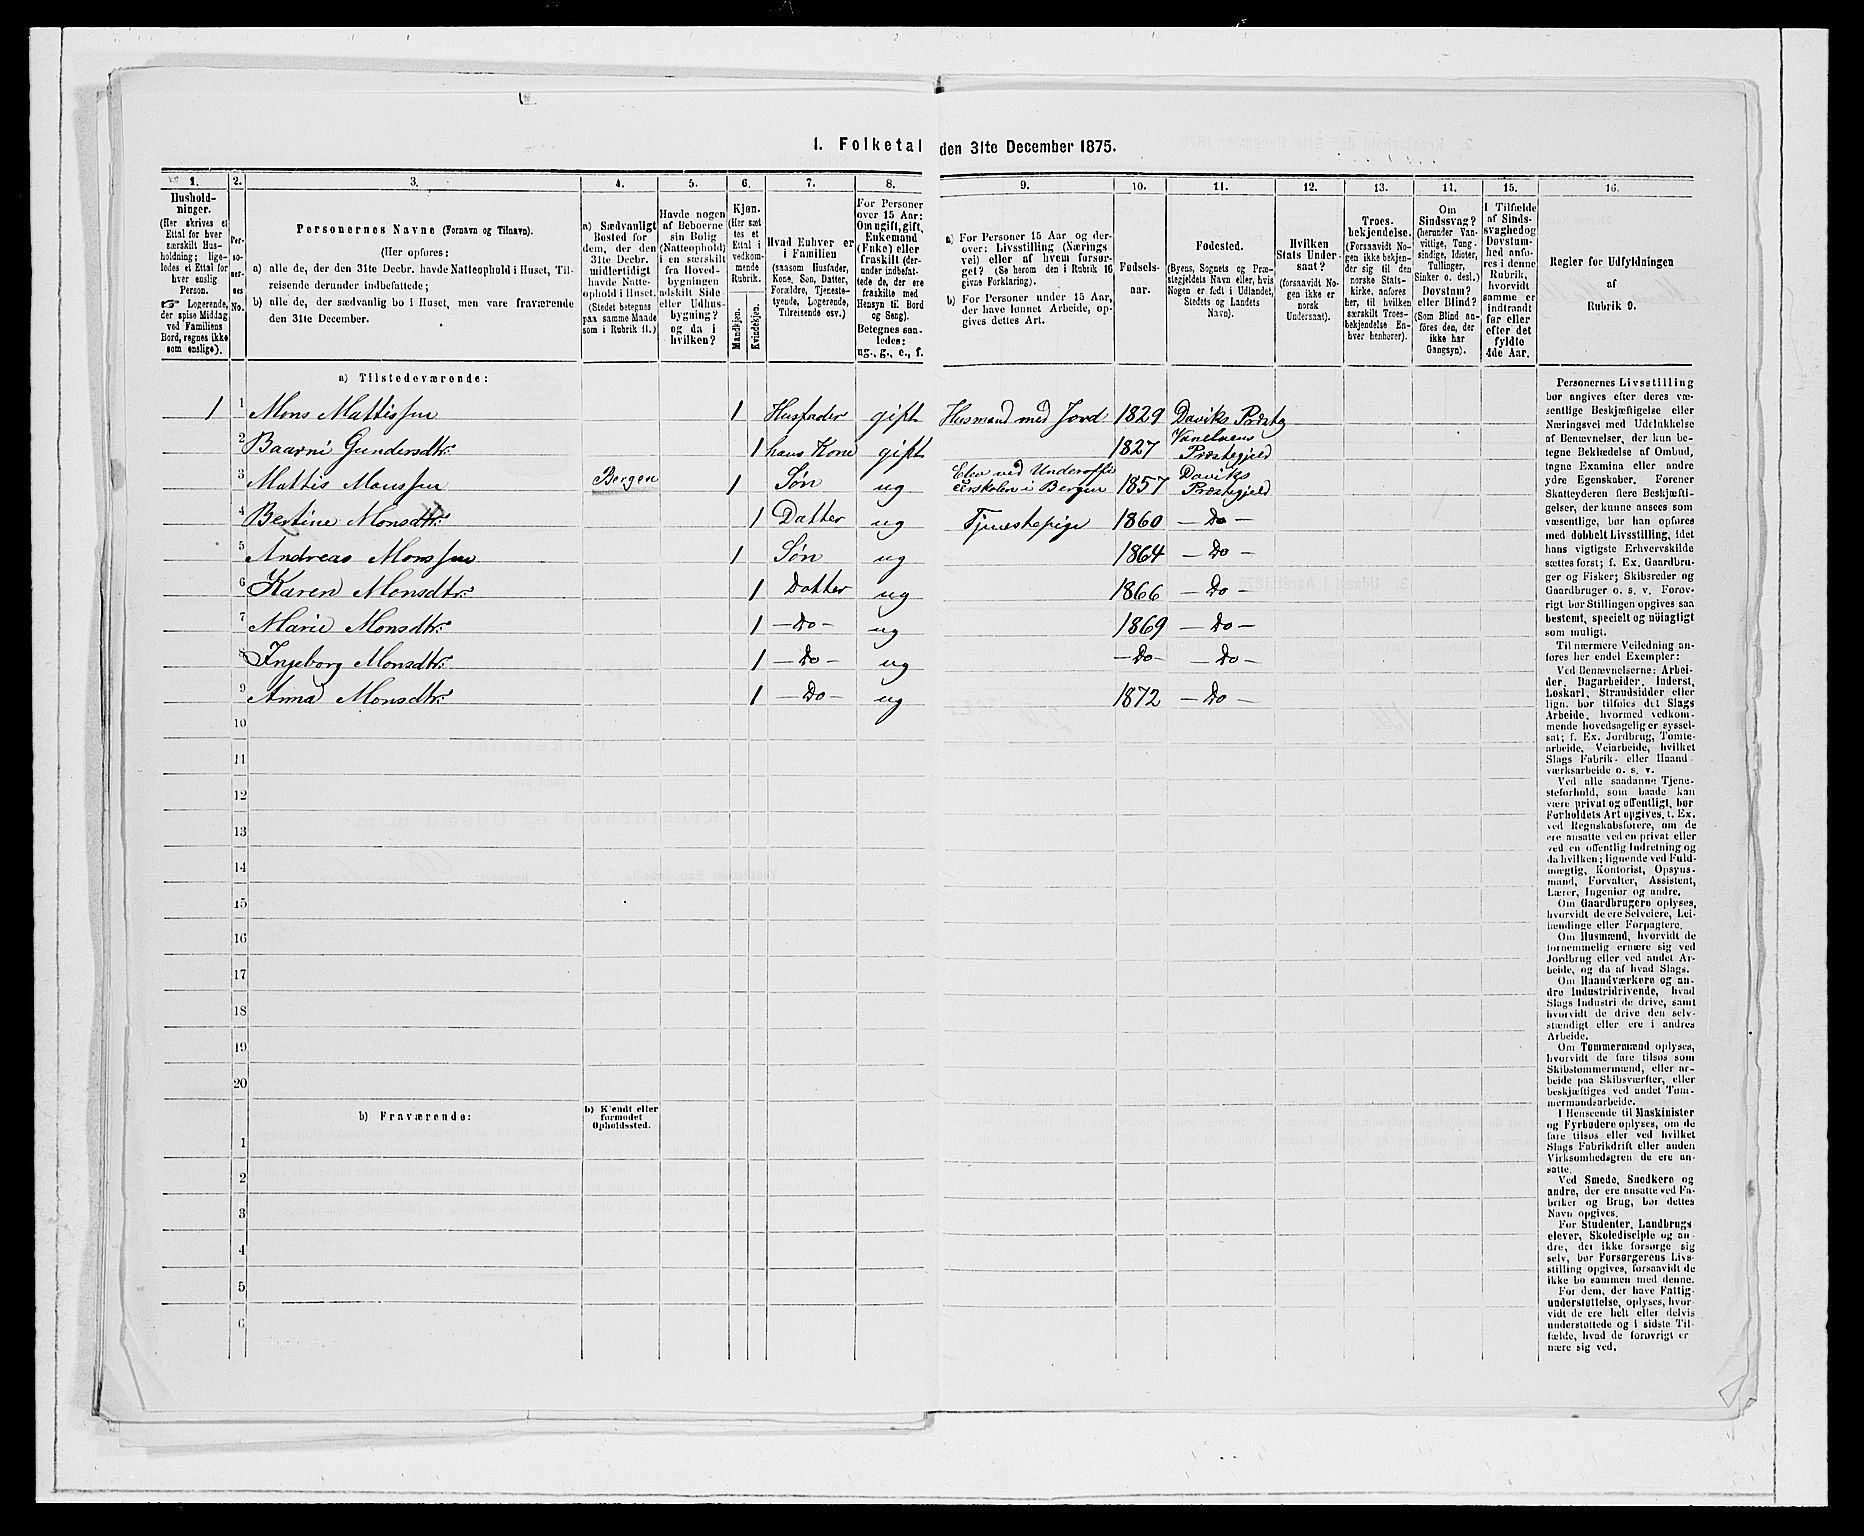 1. Folketal den 31te December 1875.
1. 2. 3. 4. 5. 6. 7. 8. 9. 10. 11. 12. 13. 14. 15. 16.
Hushold-
ninger.
(Her skrives et
Ettal for hver
særskilt Hus-
holdning; lige-
ledes et Ettal for
hver enslig
Person.
☞ Logerende,
der spise Middag
ved Familiens
Bord, regnes ikke
som enslige).
Per-
so-
ner-
nes
No.
Personernes Navne (Fornavn og Tilnavn).
(Her opføres:
a) alle de, der den 31te Decbr. havde Natteophold i Huset, Til-
reisende derunder indbefattede;
b) alle de, der sædvanlig bo i Huset, men vare fraværende
den 31te December.
a) Sædvanligt
Bosted for
dem, der den
31te Decbr.
midlertidigt
havde Natte-
ophold i Huset.
(Stedet betegnes
paa samme Maade
som i Rubrik 11.)
Havde nogen
af Beboerne
sin Bolig
(Natteophold)
i en særskilt
fra Hoved-
bygningen
adskilt Side-
eller Udhus-
bygning?
og da i
hvilken?
Kjøn.
(Her sæt-
tes et
Ettal i
vedkom-
mende
Rubrik.
Mandkjøn.
Kvindekjøn.
Hvad Enhver er
i Familien
(saasom Husfader,
Kone, Søn, Datter,
Forældre, Tjeneste-
tyende, Logerende,
Tilreisende osv.)
For Personer
over 15 Aar:
Om ugift, gift,
Enkemand
(Enke) eller
fraskilt (der-
under indbefat-
tede de, der ere
fraskilte med
Hensyn til Bord
og Seng).
Betegnes saa-
ledes:
ug., g., e., f.
a) For Personer 15 Aar og der-
over: Livsstilling (Nærings
vei) eller af hvem forsør-
get? (Se herom den i Rubrik 16
givne Forklaring).
b) For Personer under 15 Aar,
der have lønnet Arbeide, op-
gives dettes Art.
Fødsels-
aar.
Fødested.
(Byens, Sognets og Præ-
stegjeldets Navn eller, hvis
Nogen er født i Udlandet,
Stedets og Landets
Navn).
Hvilken
Stats Under-
saat?
(forsaavidt No-
gen ikke er
norsk
Undersaat).
Troes-
bekjendelse.
(Forsaavidt No-
gen ikke bekjen-
der sig til den
norske Stats-
kirke, anføres
her, til hvilken
særskilt Troes-
bekjendelse En-
hver henhører).
Om
Sindssvag?
(herunder Van-
vittige, Tung-
sindige, Idioter,
Tullinger,
Sinker o. desl.)
Døvstum?
eller Blind?
(Som Blind an-
føres den, der
ikke har
Gangsyn).
I Tilfælde
af Sinds-
svaghed og
Døvstum-
hed anfø-
res i denne
Rubrik,
hvorvidt
samme er
indtraadt
før eller
efter det
fyldte
4de Aar.
Regler for Udfyldningen
af
Rubrik 9.
a) Tilstedeværende:
1 1 Mons Mattissen 1 Husfader gift Husmand med Jord 1829 Daviks Præsteg
2 Baarni Gundersdtr. 1 hans Kone gift 1827 Vanelvens Præstegjeld
3 Mattis Monssen Bergen 1 Søn ug Elev ved Underoffi-
cerskolen i Bergen 1857 Daviks Præstegjeld
4 Bertine Monsdtr. 1 Datter ug Tjenestepige 1860 – Do –
5 Andreas Monssen 1 Søn ug 1864 – Do –
6 Karen Monsdtr. 1 Datter ug 1866 – Do –
7 Marie Monsdtr. 1 – Do – ug 1869 – Do –
8 Ingeborg Monsdtr. 1 – Do – ug – Do – – Do –
9 Anna Monsdtr. 1 – Do – ug 1872 – Do –
10
11
12
13
14
15
16
17
18
19
20
b) Fraværende:
b) Kjendt eller
formodet
Opholdssted.
1
2
3
4
5
6
Personernes Livsstilling
bør angives efter deres væ-
sentlige Beskjæftigelse eller
Næringsvei med Udelukkelse
af Benævnelser, der kun be-
tegne Beklædelse af Ombud,
tagne Examina eller andre
ydre Egenskaber. Forener
Skatteyderen flere Beskjæfti-
gelser, der kunne ansees som
væsentlige, bør han opføres
med dobbelt Livsstilling, idet
hans vigtigste Erhvervskilde
sættes først; f. Ex. Gaardbru-
ger og Fisker; Skibsreder og
Gaardbruger o. s. v. Forøv-
rigt bør Stillingen opgives saa
bestemt, specielt og nøiagtigt
som muligt.
Til nærmere Veiledning an-
føres her endel Exempler:
Ved Benævnelserne: Arbei-
der, Dagarbeider, Inderst,
Løskarl, Strandsidder eller
lign. bør tilføies det Slags
Arbeide, hvormed vedkom-
mende hovedsagelig er syssel-
sat; f. Ex. Jordbrug, Tomte-
arbeide, Veiarbeide, hvilket
Slags Fabrik- eller Haand-
værksarbeide o. s. v.
Ved alle saadanne Tjene-
steforhold, som baade kan
være privat og offentligt, bør
Forholdets Art opgives, t. Ex.
ved Regnskabsførere, om de
ere ansatte ved en privat eller
ved en offentlig Indretning og
da hvilken; lignende ved Fuld-
mægtig, Kontorist, Opsyns-
mand, Forvalter, Assistent,
Lærer, Ingeniør og andre.
Om Gaardbrugere oplyses,
hvorvidt de ere Selveiere, Lei-
lændinge eller Forpagtere.
Om Husmænd, hvorvidt de
fornemmelig ernære sig ved
Jordbrug eller ved andet Ar-
beide, og da af hvad Slags.
Om Haandværkere og an-
dre Industridrivende, hvad
Slags Industri de drive, samt
hvorvidt de drive den selv-
stændigt eller ere i andres
Arbeide.
Om Tømmermænd oplyses,
hvorvidt de fare tilsøs som
Skibstømmermænd, eller ar-
beide paa Skibsværfter, eller
beskjæftiges ved andet Tøm-
mermandsarbeide.
I Henseende til Maskinister
og Fyrbødere oplyses, om de
fare tilsøs eller ved hvilket
Slags Fabrikdrift eller anden
Virksomhedsgren de ere an-
satte.
Ved Smede, Snedkere og
andre, der ere ansatte ved Fa-
briker og Brug, bør dettes
Navn opgives.
For Studenter, Landbrugs-
elever, Skoledisciple og an-
dre, der ikke forsørge sig
selv, bør Forsørgerens Livs-
stilling opgives, forsaavidt de
ikke bo sammen med denne.
For dem, der have Fattig-
understøttelse, oplyses, hvor-
vidt de ere helt eller delvis
understøttede og i sidste Til-
fælde, hvad de forøvrigt er-
nære sig ved.